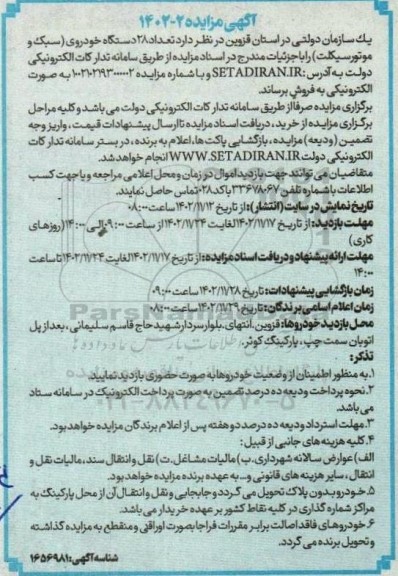 آگهی مزایده ۲-۱۴۰۲
یک سازمان دولتی در استان قزوین در نظر دارد تعداد ۲۸ دستگاه خودروی (سبک و
موتورسیکلت) را با جزئیات مندرج در اسناد مزایده از طریق سامانه تدارکات الکترونیکی
دولت به آدرس: SETADIRAN.IR و با شماره مزایده ۱۰۰۲۱۰۲۱۹۳۰۰۰۰۰۲ به صورت
الکترونیکی به فروش برساند.
برگزاری مزایده صرفا از طریق سامانه تدارکات الکترونیکی دولت می باشد و کلیه مراحل
برگزاری مزایده از خرید، دریافت اسناد مزایده تا ارسال پیشنهادات قیمت، واریز وجه
تضمین (ودیعه) مزایده، بازگشایی پاکت ها، اعلام به برنده، در بستر سامانه تدارکات
الکترونیکی دولت WWW.SETADIRAN.IR انجام خواهد شد.
متقاضیان می توانند جهت بازدید اموال در زمان و محل اعلامی مراجعه و یا جهت کسب
اطلاعات با شماره تلفن ۳۳۶۷۸۰۶۷ با کد ۰۲۸ تماس حاصل نمایند.
تاریخ نمایش در سایت (انتشار): از تاریخ ۱۴۰۲/۱۱/۱۲ ساعت ۰۸:۰۰
مهلت بازدید: از تاریخ ۱۴۰۲/۱۱/۱۷ لغایت ۱۴۰۲/۱۱/۲۴ از ساعت ۰۹:۰۰ الی ۱۴:۰۰ (روزهای
کاری)
مهلت ارائه پیشنهاد و دریافت اسناد مزایده: از تاریخ ۱۴۰۲/۱۱/۱۷ لغایت ۱۴۰۲/۱۱/۲۴ تا ساعت
۱۴:۰۰
زمان بازگشایی پیشنهادات: تاریخ ۱۴۰۲/۱۱/۲۸ ساعت ۰۹:۰۰
زمان اعلام اسامی برندگان: تاریخ ۱۴۰۲/۱۱/۲۹ ساعت ۰۸:۰۰
محل بازدید خودروها: قزوین، انتهای بلوار سردار شهید حاج قاسم سلیمانی، بعد از پل
اتوبان سمت چپ، پارکینگ کوثر.
تذکر:
۱. به منظور اطمینان از وضعیت خودروها به صورت حضوری بازدید نمایید.
۲. نحوه پرداخت ودیعه ده درصد تضمین به صورت پرداخت الکترونیک در سامانه ستاد
می باشد.
۳. مهلت استرداد ودیعه ده درصد دو هفته پس از اعلام برندگان مزایده خواهد بود.
۴. کلیه هزینه های جانبی از قبیل:
الف) عوارض سالانه شهرداری. ب) مالیات مشاغل. ت) نقل و انتقال سند، مالیات نقل و
انتقال، سایر هزینه های قانونی و... به عهده برنده مزایده خواهد بود.
۵. خودرو بدون پلاک تحویل می گردد و جابجایی و نقل و انتقال آن از محل پارکینگ به
مراکز شماره گذاری در کلیه نقاط کشور بر عهده خریدار می باشد.
۶. خودروهای فاقد اصالت برابر مقررات فراجا بصورت اوراقی و منقطع به مزایده گذاشته
و تحویل برنده می گردد.
شناسه آگهی: ۱۶۵۶۹۸۱